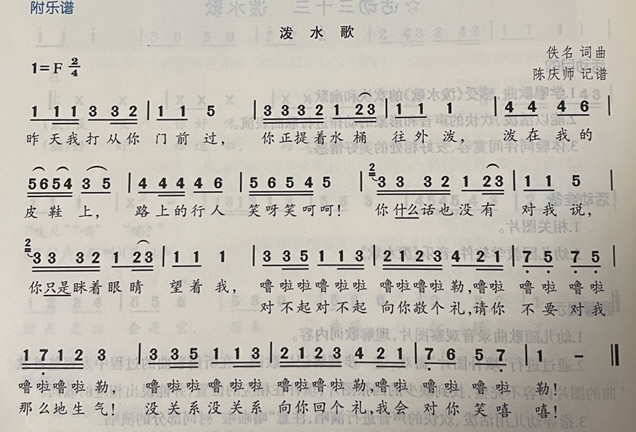 附乐谱
泼水歌
佚名 词曲
1=F 2/4
陈庆师 记谱
1 1 1 3 3 2 | 1 1 5 | 3 3 3 2 1 2 3 | 1 1 1 | 4 4 4 6
昨天我打从你 门前过, 你正提着水桶 往外泼, 泼在我的
5 6 5 4 3 5 | 4 4 4 4 6 | 5 6 5 4 5 | 2 3 3 3 2 1 2 3 | 1 1 5
皮鞋上, 路上的行人 笑呀笑呵呵! 你什么话也没有 对我说,
2 3 3 3 2 1 2 3 | 1 1 1 | 3 3 5 1 1 3 | 2 3 2 4 2 1 | 7 5 7 5
你只是眯着眼睛 望着我, 噜啦啦噜啦啦 噜啦噜啦勒,噜啦 噜啦噜啦
对不起对不起 向你敬个礼,请你 不要对我
1 7 1 2 3 | 3 3 5 1 1 3 | 2 3 2 4 2 1 | 7 6 5 7 | 1 -
噜啦噜啦勒, 噜啦啦噜啦啦 噜啦噜啦勒,噜啦 噜啦噜啦 勒!
那么地生气! 没关系没关系 向你回个礼,我会 对你笑嘻 嘻!